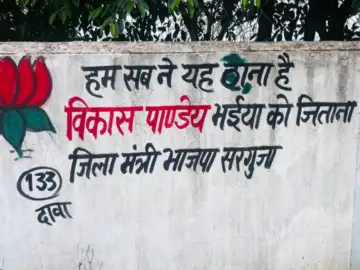 हम सब ने यह ठाना है
विकास पाण्डेय भईया को जिताना
जिला मंत्री भाजपा सरगुजा
133
दावा